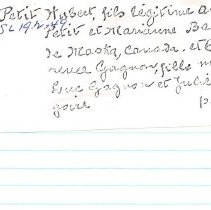 Petit Hubert, fils légitime a
Petit et Marianne Be
de Maska, Canada. et E
renée Gagnon, fille m
Luc Gagnon et Julie
goire